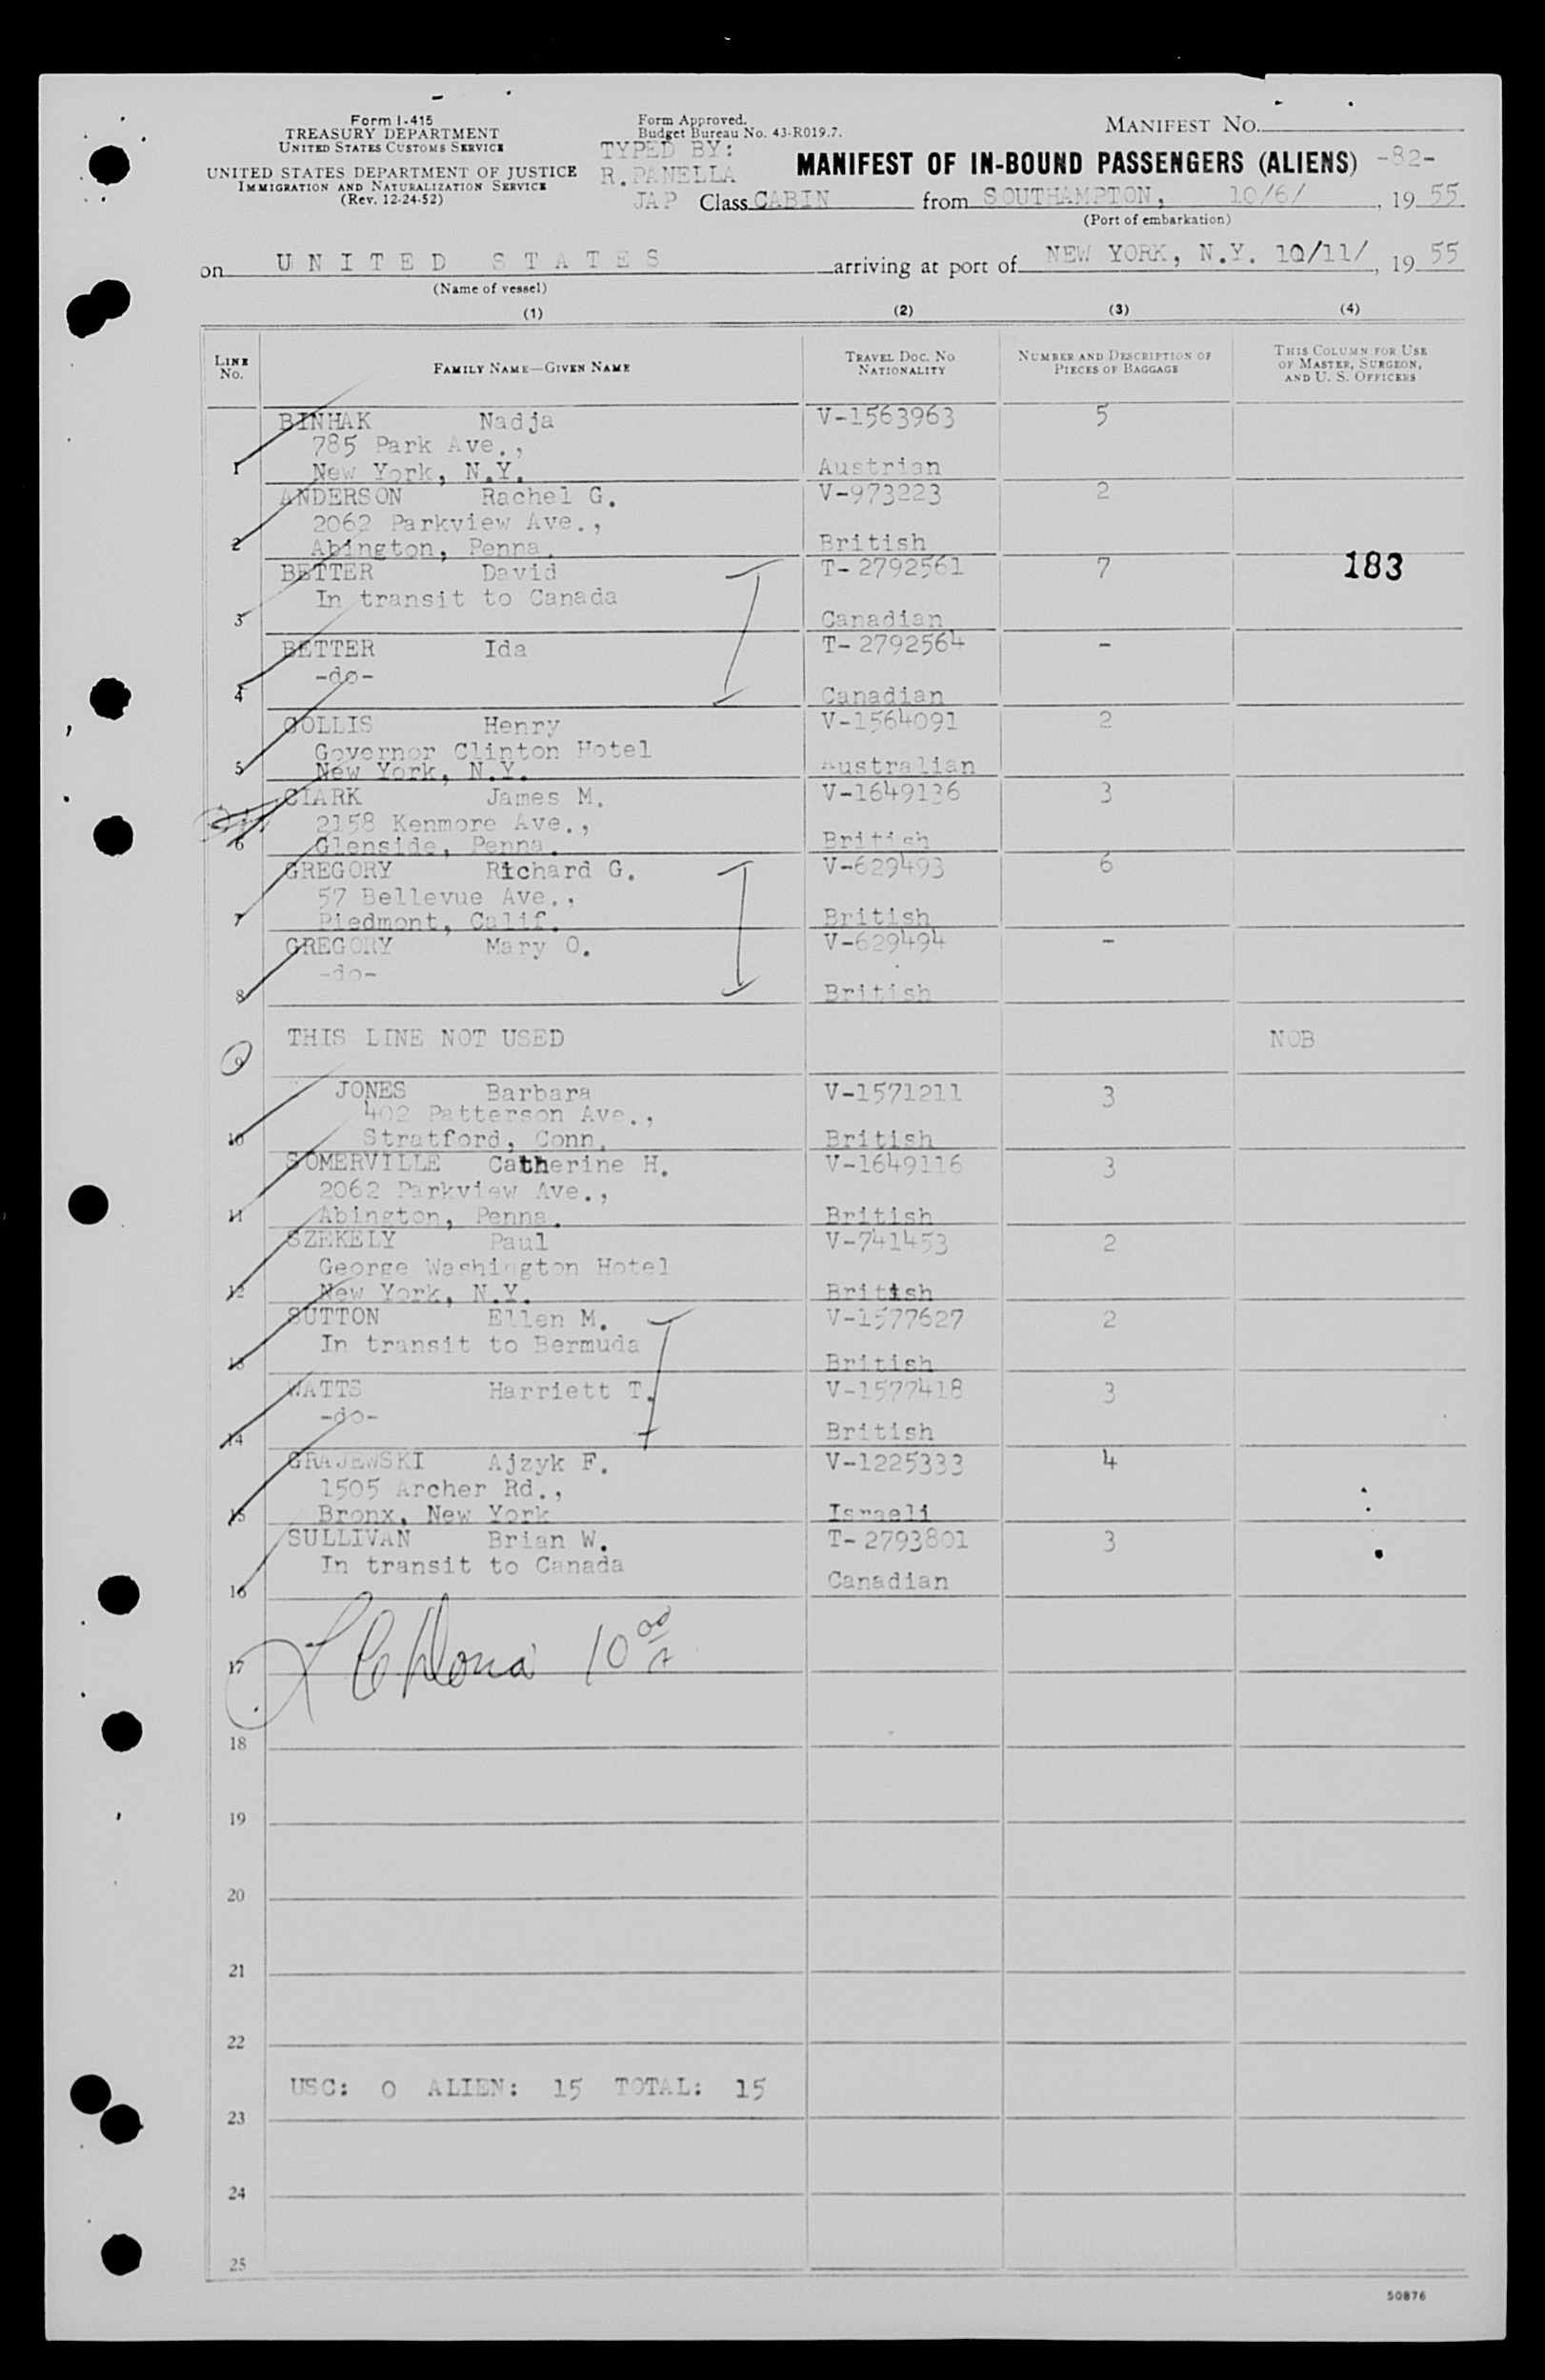 Form I-415
TREASURY DEPARTMENT
UNITED STATES CUSTOMS SERVICE
UNITED STATES DEPARTMENT OF JUSTICE
IMMIGRATION AND NATURALIZATION SERVICE
(Rev. 12-24-52)
Form Approved.
Budget Bureau No. 43-R019.7.
TYPED BY:
R. PANELLA
JAP
MANIFEST NO.
MANIFEST OF IN-BOUND PASSENGERS (ALIENS) -82-
Class CABIN from SOUTHAMPTON, 10/6/, 19 55
(Port of embarkation)
on UNITED STATES arriving at port of NEW YORK, N.Y. 10/11/, 19 55
(Name of vessel)
(1) (2) (3) (4)
LINE No. FAMILY NAME—GIVEN NAME TRAVEL DOC. NO NATIONALITY NUMBER AND DESCRIPTION OF PIECES OF BAGGAGE THIS COLUMN FOR USE OF MASTER, SURGEON, AND U. S. OFFICERS
BINHAK Nadja V-1563963 5
785 Park Ave.,
1 New York, N.Y. Austrian
ANDERSON Rachel G. V-973223 2
2062 Parkview Ave.,
2 Abington, Penna. British
BETTER David T-2792561 7 183
In transit to Canada
3 Canadian
BETTER Ida T-2792564 -
-do-
4 Canadian
GOLLIS Henry V-1564091 2
Governor Clinton Hotel
5 New York, N.Y. Australian
CLARK James M. V-1649136 3
2158 Kenmore Ave.,
6 Glenside, Penna. British
GREGORY Richard G. V-629493 6
57 Bellevue Ave.,
7 Piedmont, Calif. British
GREGORY Mary O. V-629494 -
-do-
8 British
9 THIS LINE NOT USED NOB
JONES Barbara V-1571211 3
402 Patterson Ave.,
10 Stratford, Conn. British
SOMERVILLE Catherine H. V-1649116 3
2062 Parkview Ave.,
11 Abington, Penna. British
SZEKELY Paul V-741453 2
George Washington Hotel
12 New York, N.Y. British
SUTTON Ellen M. V-1577627 2
In transit to Bermuda
13 British
WATTS Harriett T. V-1577418 3
-do-
14 British
GRAJEWSKI Ajzyk F. V-1225333 4
1505 Archer Rd.,
15 Bronx, New York Israeli
SULLIVAN Brian W. T-2793801 3
In transit to Canada
16 Canadian
17 10 00
18
19
20
21
22
USC: 0 ALIEN: 15 TOTAL: 15
23
24
25
50876